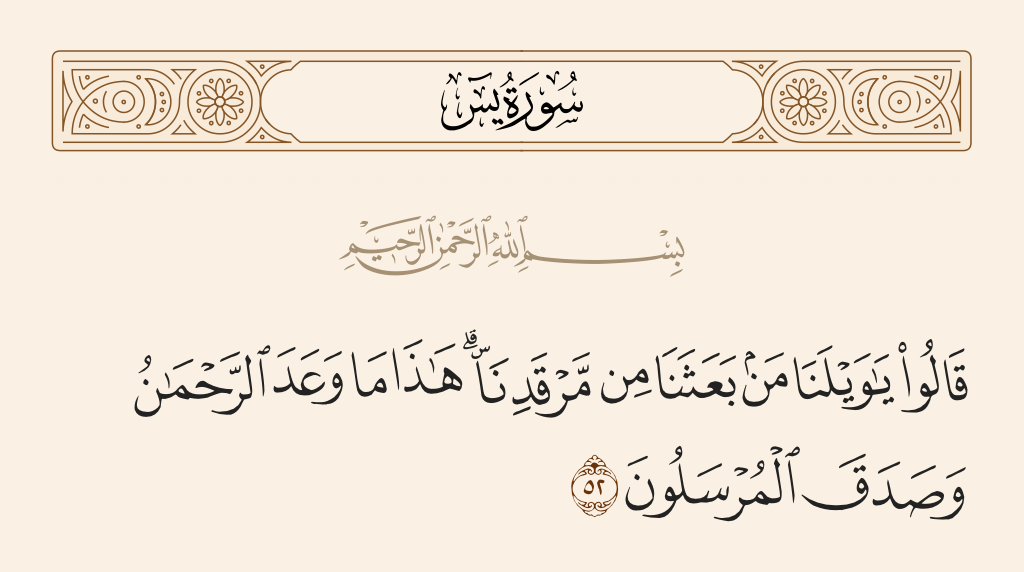 سُورَةُ يسٓ
بِسْمِ ٱللَّهِ ٱلرَّحْمَٰنِ ٱلرَّحِيمِ
قَالُوا۟ يَـٰوَيْلَنَا مَنۢ بَعَثَنَا مِن مَّرْقَدِنَا ۜ ۗ هَـٰذَا مَا وَعَدَ ٱلرَّحْمَـٰنُ
وَصَدَقَ ٱلْمُرْسَلُونَ ٥٢